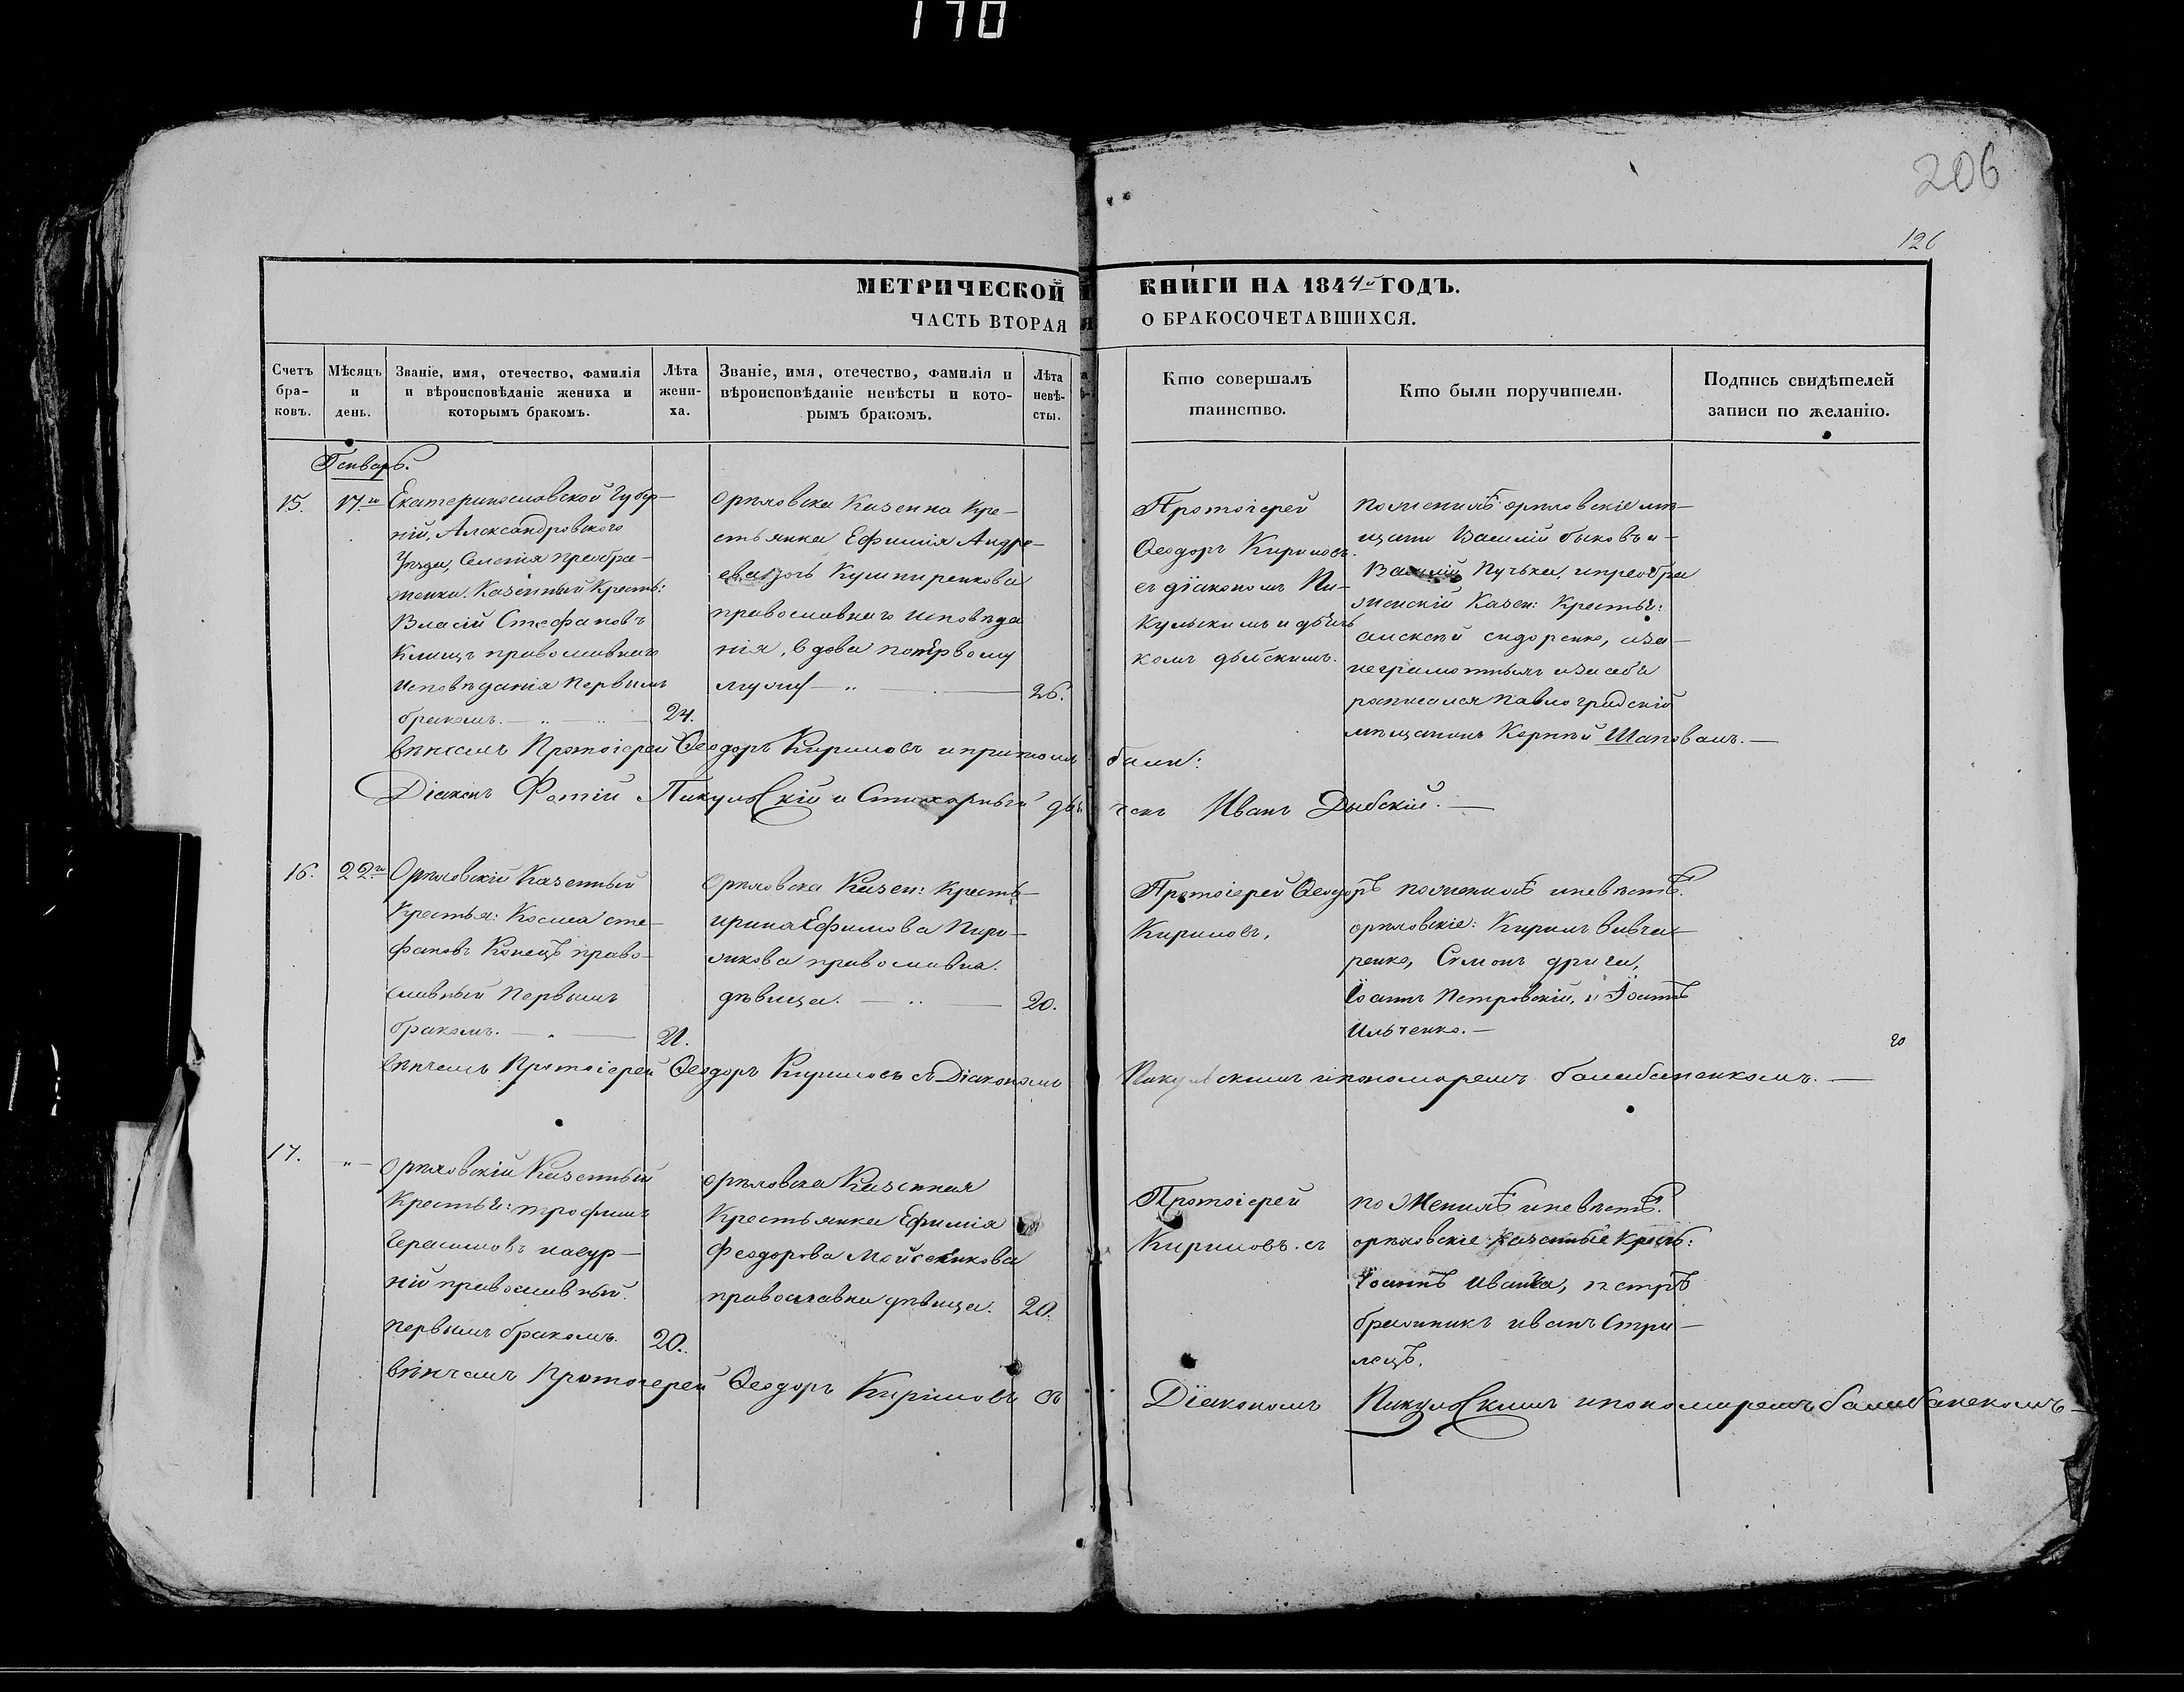 170
206
126
МЕТРИЧЕСКОЙ КНИГИ НА 1844й ГОДЪ.
ЧАСТЬ ВТОРАЯ О БРАКОСОЧЕТАВШИХСЯ.
Счетъ бра-ковъ.
Мѣсяцъ и день.
Званіе, имя, отечество, фамилія и вѣроисповѣданіе жениха и которымъ бракомъ.
Лѣта жени-ха.
Званіе, имя, отечество, фамилія и вѣроисповѣданіе невѣсты и кото-рымъ бракомъ.
Лѣта невѣ-сты.
Кто совершалъ таинство.
Кто были поручители.
Подпись свидѣтелей записи по желанію.
Генварь.
15.
17.го
Екатеринославской Губер-
ніи, Александровского
Уѣзда, Селенія преобра-
женки. Казенный Кресть:
Власій Стефановъ
Клищъ православнаго
исповѣданія первымъ
бракомъ.
24.
Орѣховска Казенна Кре-
стьянка Ефимія Андре-
ева дочь Кушниренкова
православнаго исповѣда
нія, вдова по первому
мужу
26.
Протоіерей
Ѳеодоръ Кириловъ
съ діакономъ Пи-
кульскимъ и дьяч
комъ дыбскимъ.
по женихѣ орѣховскіе мѣ-
щане Василій быковъ и
Василій Пучька, и преобра
женскій Казен: Крестья:
сидоренко, и за
неграмотныхъ и за себя
росписался павлоградскій
мѣщанинъ Корній Шаповалъ.
вѣнчалъ Протоіерей Ѳеодоръ Кириловъ и при томъ были:
Діаконъ Фотій Пикульскій и Стихарный дьячекъ Иванъ Дыбскій.
16.
22.го
Орѣховскій Казенный
Крестья: Косма сте-
фановъ Конецъ право-
славный первымъ
бракомъ.
21.
Орѣховска Казен: Кресть-
ирина Ефимова Пиро-
жкова православна.
дѣвица.
20.
Протоіерей Ѳеодоръ
Кириловъ,
по женихѣ и невѣстѣ.
орѣховскіе: Кирилъ вивча-
ренко, Симонъ дрига,
Іоаннъ Петровскій, и Іоаннъ
Ильченко.
вѣнчалъ Протоіерей Ѳеодоръ Кириловъ съ Діакономъ Пикульскимъ и пономаремъ балабаненкомъ.
17.
Орѣховскій Казенный
Крестья: трофимъ
Герасимовъ
православный.
первымъ бракомъ.
20.
орѣховска Казенная
Крестьянка Ефимія
Феодорова Мойсеенкова
православна дѣвица.
20.
Протоіерей
Кириловъ. съ
по Женихѣ и невѣстѣ.
орѣховскіе казенные Кресть:
Іоаннъ Ивашка, петръ
бражникъ иванъ Стри-
лецъ.
вѣнчалъ Протоіерей Ѳеодоръ Кириловъ съ Діакономъ Пикульскимъ и пономаремъ балабаненкомъ